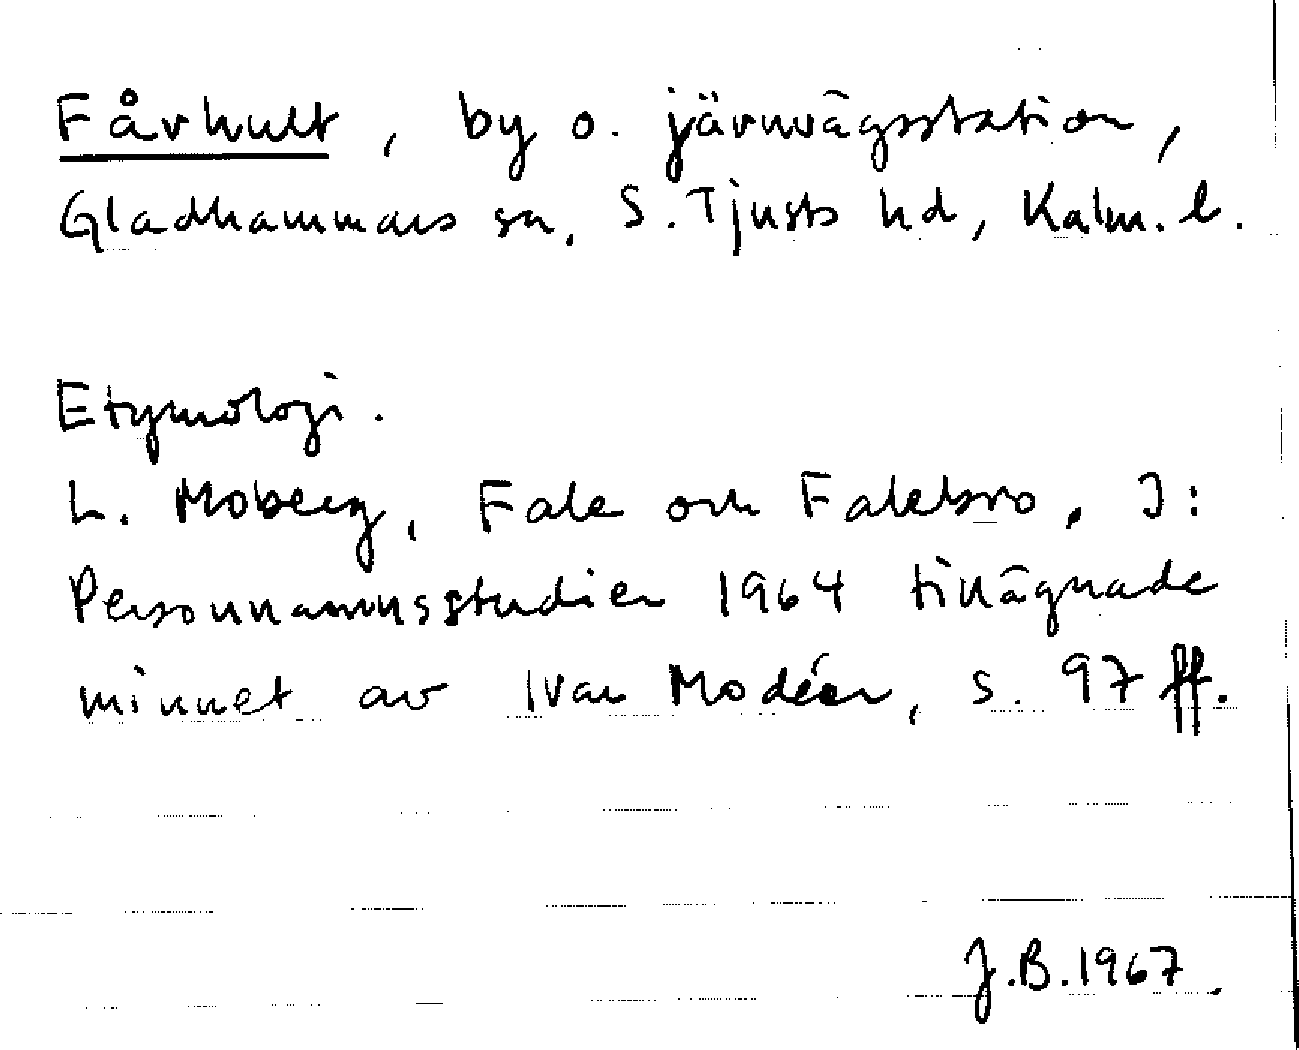 Fårhult, by o. järnvägsstation,
Gladhammars sn, S. Tjusts hd, Kalm. l.
Etymologi.
L. Moberg, Fale och Falebro. I:
Personnamnsstudier 1964 tillägnade
minnet av Ivar Modéer, s. 97 ff.
J.B. 1967.